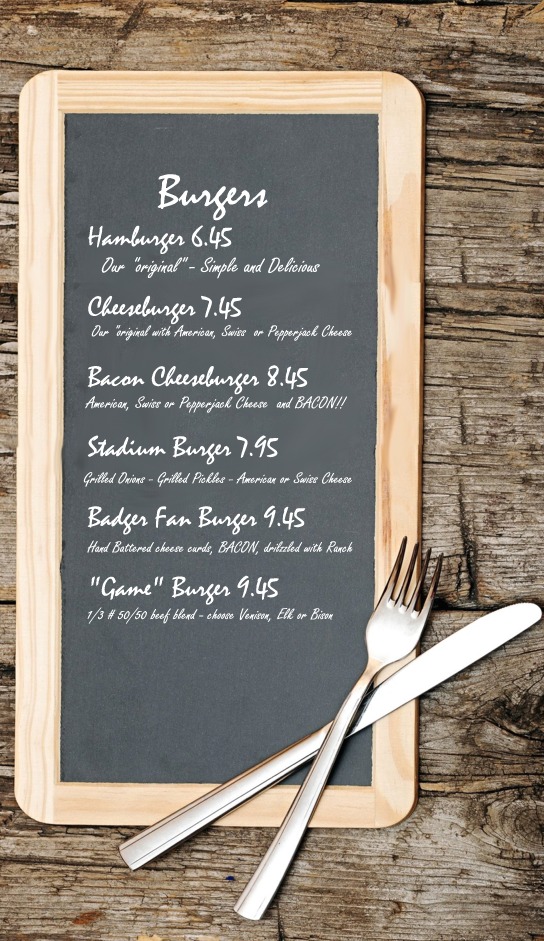 Burgers
Hamburger 6.45
Our "original" - Simple and Delicious
Cheeseburger 7.45
Our "original with American, Swiss or Pepperjack Cheese
Bacon Cheeseburger 8.45
American, Swiss or Pepperjack Cheese and BACON!!
Stadium Burger 7.95
Grilled Onions - Grilled Pickles - American or Swiss Cheese
Badger Fan Burger 9.45
Hand Battered cheese curds, BACON, drilzzled with Ranch
"Game" Burger 9.45
1/3 # 50/50 beef blend - choose Venison, Elk or Bison